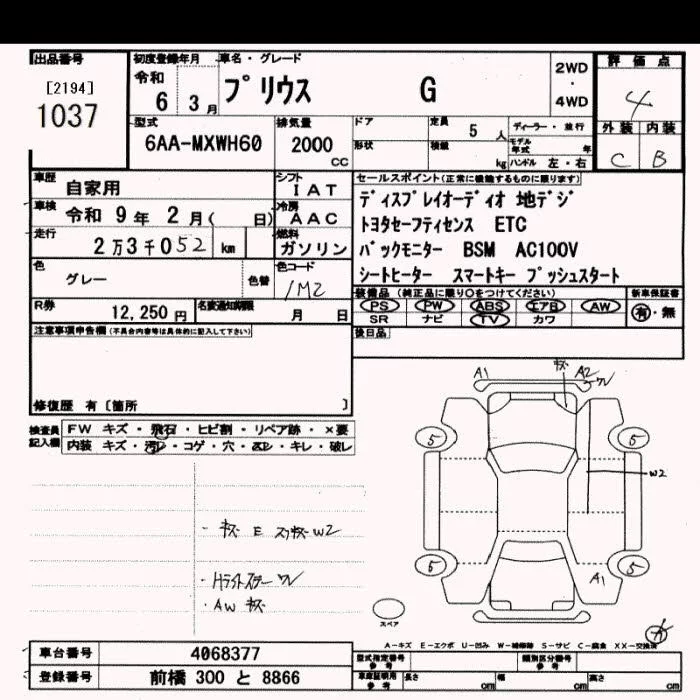 出品番号
[2194]
1037
初度登録年月
令和
6 3月
車名・グレード
プリウス G
2WD
・
4WD
評価点
4
外装 内装
C B
型式
6AA-MXWH60
排気量
2000
cc
ドア
形状
定員
5 人
積載
kg
ディーラー・並行
モデル
年式 年
ハンドル 左・右
車歴
自家用
シフト
IAT
車検
令和 9年 2月( 日)
冷房
AAC
走行
2万3千052 km
燃料
ガソリン
色
グレー
色替
色コード
1M2
セールスポイント(正常に機能するものに限ります)
ディスプレイオーディオ 地デジ
トヨタセーフティセンス ETC
バックモニター BSM AC100V
シートヒーター スマートキー プッシュスタート
R券
12,250 円
名変通知期限
月 日
装備品 (純正品に限り○をつけてください)
PS PW ABS エアB AW
SR ナビ TV カワ
新車保証書
有・無
注意事項申告欄(不具合内容等は具体的に記入して下さい)
後日品
修復歴 有〔箇所 〕
検査員
記入欄
FW キズ・飛石・ヒビ割・リペア跡・×要
内装 キズ・汚レ・コゲ・穴・スレ・キレ・破レ
A1
キズ
A2
ワレ
5
5
W2
5
5
A1
スペア
・キズ E W2
・Hライトステー ワレ
・AW キズ
A
A−キズ E−エクボ U−凹み W−補修跡 S−サビ C−腐食 XX−交換済
車台番号
4068377
登録番号
前橋 300 と 8866
型式指定番号
参考
類別区分番号
参考
車庫証明用
参考
長さ cm
幅 cm
高さ cm